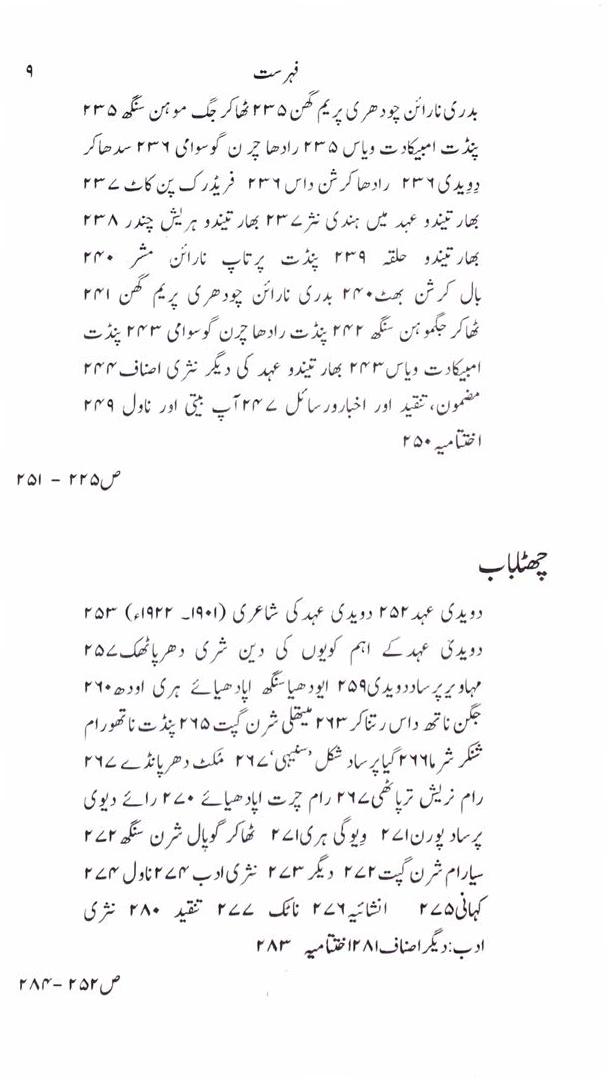 فہرست ۹
بدری نارائن چودھری پریم گھن ۲۳۵ ٹھاکر جگ موہن سنگھ ۲۳۵
پنڈت امبیکادت ویاس ۲۳۵ رادھا چرن گوسوامی ۲۳۶ سدھاکر
دویدی ۲۳۶ رادھا کرشن داس ۲۳۶ فریڈرک پن کاٹ ۲۳۷
بھارتیندو عہد میں ہندی نثر ۲۳۷ بھارتیندو ہریش چندر ۲۳۸
بھارتیندو حلقہ ۲۳۹ پنڈت پرتاپ نارائن مشر ۲۴۰
بال کرشن بھٹ ۲۴۰ بدری نارائن چودھری پریم گھن ۲۴۱
ٹھاکر جگموہن سنگھ ۲۴۲ پنڈت رادھا چرن گوسوامی ۲۴۳ پنڈت
امبیکادت ویاس ۲۴۳ بھارتیندو عہد کی دیگر نثری اصناف ۲۴۴
مضمون، تنقید اور اخبار ورسائل ۲۴۷ آپ بیتی اور ناول ۲۴۹
اختتامیہ ۲۵۰
ص ۲۲۵ – ۲۵۱
چھٹا باب
دویدی عہد ۲۵۲ دویدی عہد کی شاعری (۱۹۰۱ـ ۱۹۲۲ء) ۲۵۳
دویدی عہد کے اہم کویوں کی دین شری دھر پاٹھک ۲۵۷
مہاویر پرساد دویدی ۲۵۹ ایودھیا سنگھ اپادھیائے ہری اودھ ۲۶۰
جگن ناتھ داس رتناکر ۲۶۳ میتھلی شرن گپت ۲۶۵ پنڈت ناتھورام
شنکر شرما ۲۶۶ گیا پرساد شکل ’سنیہی‘ ۲۶۷ مکٹ دھر پانڈے ۲۶۷
رام نریش ترپاٹھی ۲۶۷ رام چرت اپادھیائے ۲۷۰ رائے دیوی
پرساد پورن ۲۷۱ ویوگی ہری ۲۷۱ ٹھاکر گوپال شرن سنگھ ۲۷۲
سیارام شرن گپت ۲۷۲ دیگر ۲۷۳ نثری ادب ۲۷۴ ناول ۲۷۴
کہانی ۲۷۵ انشائیہ ۲۷۶ ناٹک ۲۷۷ تنقید ۲۸۰ نثری
ادب: دیگر اصناف ۲۸۱ اختتامیہ ۲۸۳
ص ۲۵۲ – ۲۸۴